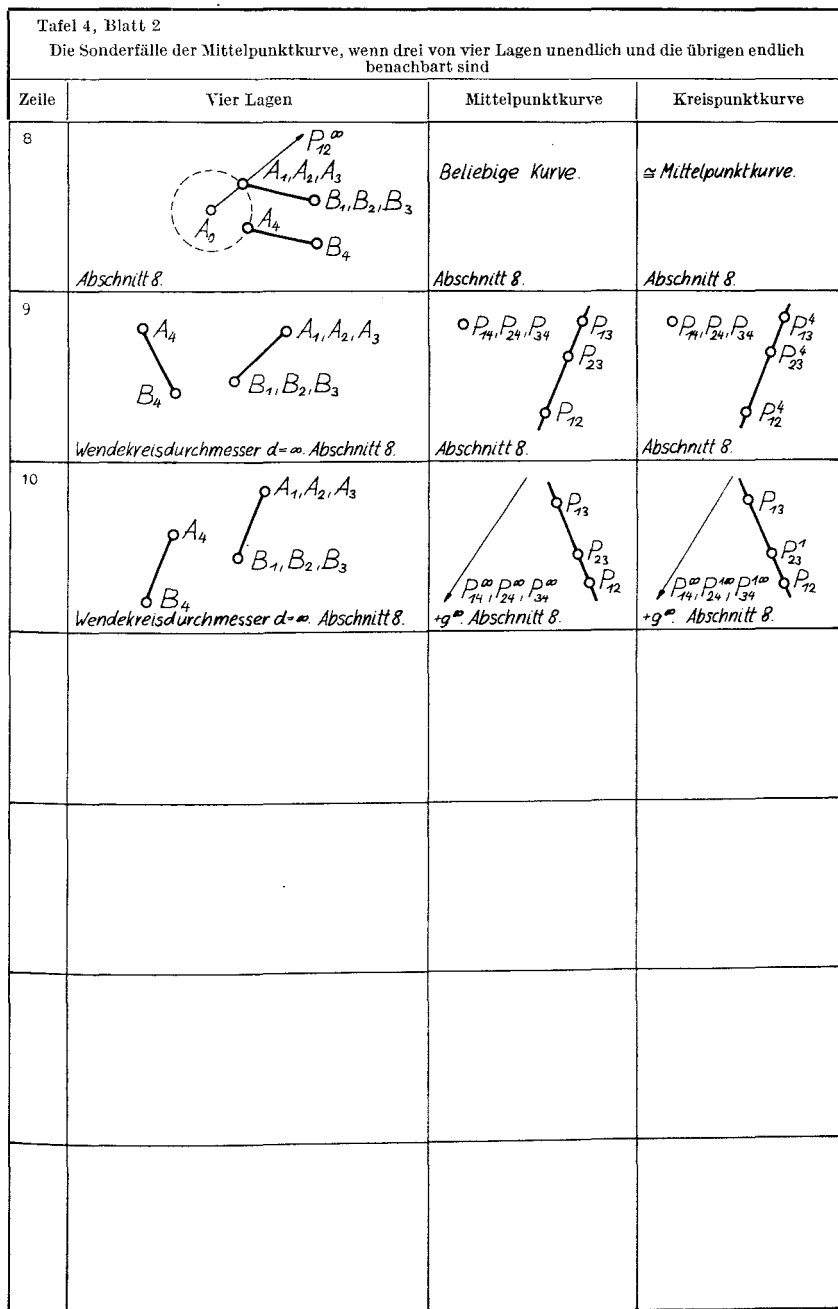 Tafel 4, Blatt 2
Die Sonderfälle der Mittelpunktkurve, wenn drei von vier Lagen unendlich und die übrigen endlich
benachbart sind
Zeile Vier Lagen Mittelpunktkurve Kreispunktkurve
8
P₁₂^∞
A₁, A₂, A₃
B₁, B₂, B₃
A₀
A₄
B₄
Abschnitt 8.
Beliebige Kurve.
Abschnitt 8.
≅ Mittelpunktkurve.
Abschnitt 8.
9
A₄
A₁, A₂, A₃
B₄
B₁, B₂, B₃
Wendekreisdurchmesser d=∞. Abschnitt 8.
P₁₄, P₂₄, P₃₄
P₁₃
P₂₃
P₁₂
Abschnitt 8.
P₁₄, P₂₄, P₃₄
P₁₃⁴
P₂₃⁴
P₁₂⁴
Abschnitt 8.
10
A₁, A₂, A₃
A₄
B₁, B₂, B₃
B₄
Wendekreisdurchmesser d=∞. Abschnitt 8.
P₁₃
P₂₃
P₁₂
P₁₄^∞, P₂₄^∞, P₃₄^∞
+g^∞. Abschnitt 8.
P₁₃
P₂₃¹
P₁₂
P₁₄^∞, P₂₄^1∞, P₃₄^1∞
+g^∞. Abschnitt 8.